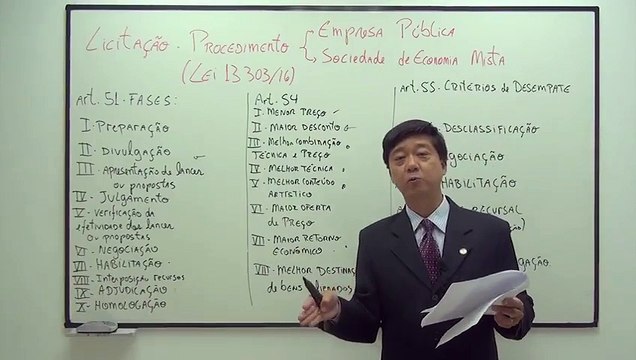 Licitação - Procedimento
(Lei 13303/16)
Empresa Pública
Sociedade de Economia Mista
Art. 51 - FASES:
I - Preparação
II - Divulgação
III - Apresentação de lances
ou propostas
IV - Julgamento
V - Verificação da
efetividade dos lances
ou propostas
VI - Negociação
VII - Habilitação
VIII - Interposição recursos
IX - Adjudicação
X - Homologação
Art. 54
I - Menor Preço
II - Maior Desconto
III - Melhor combinação
Técnica e Preço
IV - Melhor Técnica
V - Melhor Conteúdo
Artístico
VI - Maior Oferta
de Preço
VII - Maior Retorno
Econômico
VIII - Melhor Destinaç
de bens
Art. 55 - Critérios de Desempate
Desclassificação
gociação
Habilitação
Recursal